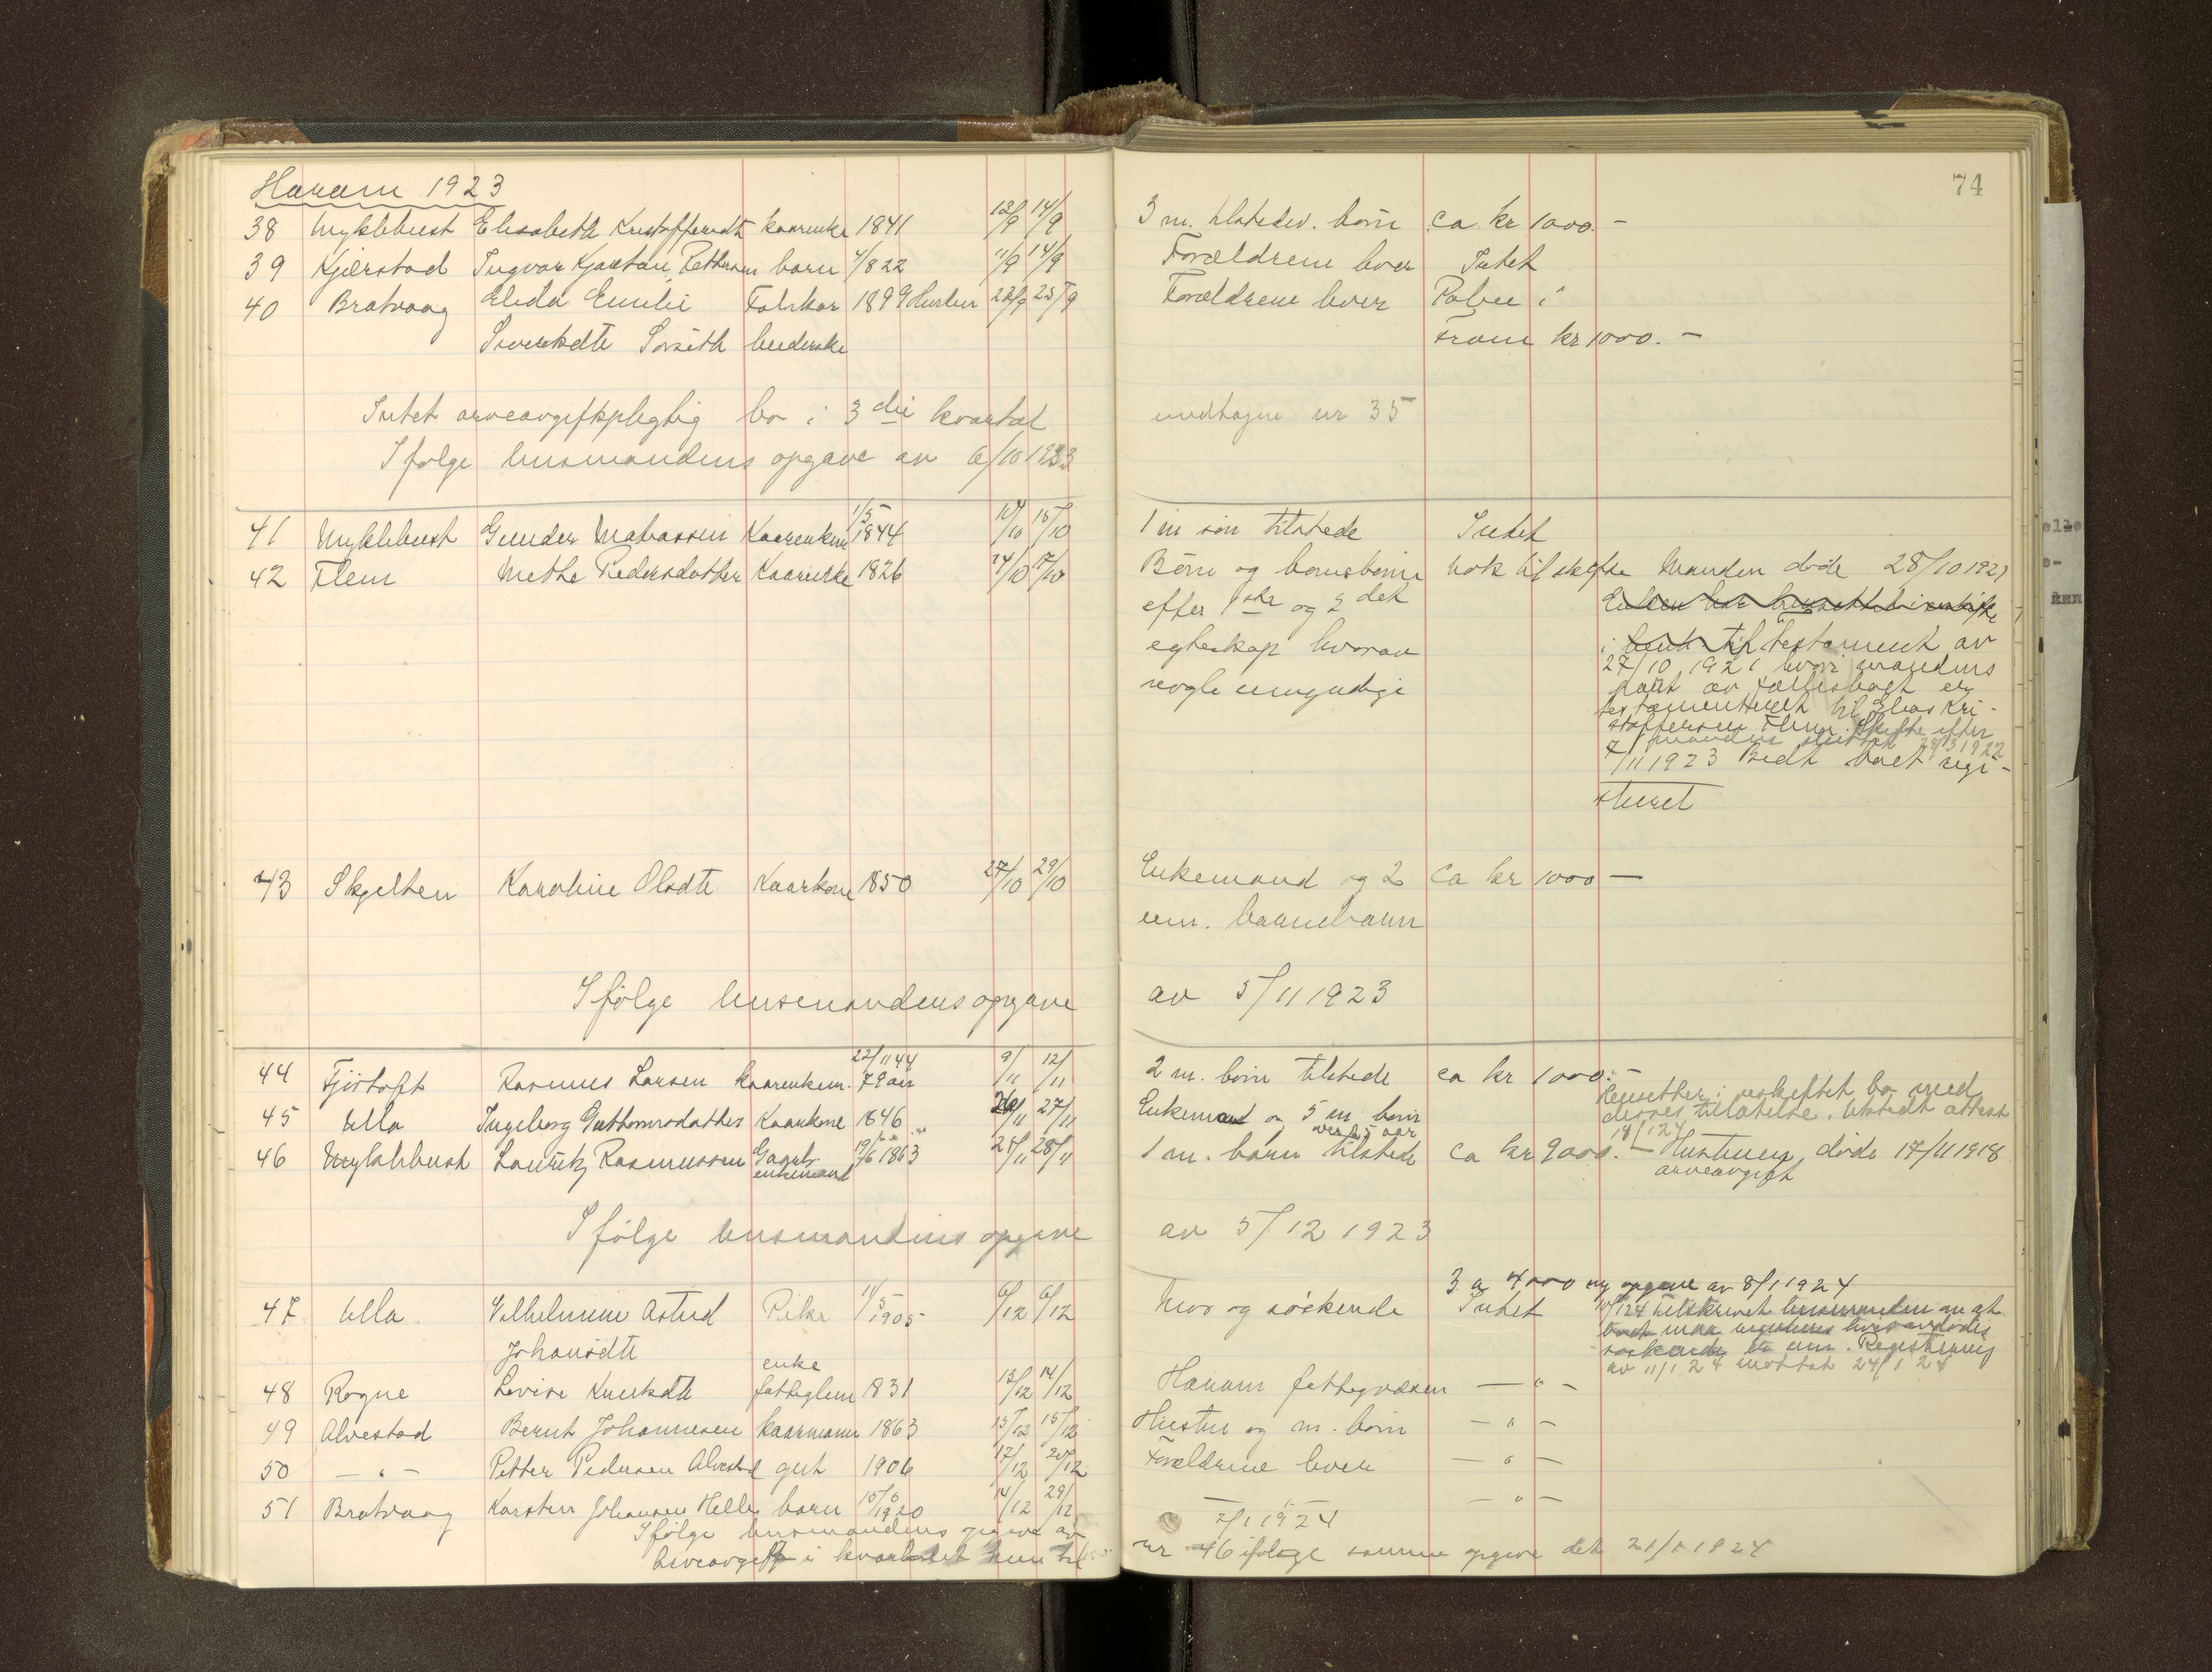 74
Haram 1923
38 Myklebust Elisabeth Kristoffersdt kaarenke 1841 12/9 14/9 3 m. tilstedev. børn ca kr 1000.-
39 Kjærstad Ingvar Kjartan Pettersen barn 4/8 22 11/9 14/9 Forældrene lever Intet
40 Bratvaag Elida Emilie Falskar 1899 Hustru 22/9 25/9 Forældrene lever Police i
Siverksdtr Sorseth Tram kr 1000.-
Intet arveavgiftspligtig bo i 3die kvartal undtagen nr 35
Ifølge lensmandens opgave av 6/10 1923
41 Myklebust Gunder Mabassen Kaarenkem 1/5 1844 10/10 15/10 1 m søn tilstede Intet
42 Flem Methe Pedersdatter Kaarenke 1826 14/10 17/10 Børn og barnebørn nok til skifte Manden døde 28/10 1921
efter 1ste og 2det
egteskap hvorav i til testament av
nogle umyndige 27/10 1921 hvori mandens
part av fællesboet er
testamenteret til Elias Kri-
stoffersen Flem. Skifte efter
manden sluttet 28/3 1922
7/11 1923 Bedt boet regi-
streret
43 Skjelten Karoline Olsdtr Kaarkone 1850 27/10 29/10 Enkemand og 2 Ca kr 1000 -
um. barnebarn
Ifølge lensmandens opgave av 5/11 1923
44 Fjørtoft Rasmus Larsen kaarenkem. 22/11 44 79 aar 9/11 12/11 2 m. børn tilstede ca kr 1000.-
45 Ulla Ingeborg Guttormsdatter Kaarkone 1846 26/11 27/11 Enkemand og 5 m. børn Hensitter i uskiftet bo med
over 25 aar deres tilatelse. Utstedt attest
18/1 24
46 Myklebust Lauritz Rasmussen Gaardb. 19/6 1863 25/11 28/11 1 m. barn tilstede ca kr 9000.- Hustruen døde 17/11 1918
enkemand arveavgift
Ifølge lensmandens opgave av 5/12 1923
3 a 4000 ny opgave av 8/1 1924
47 Ulla Vilhelmine Astrid Pike 11/5 1905 6/12 6/12 Mor og søskende Intet 10/1 24 tilskrevet lensmanden om at
Johansdtr boet maa registreres hvis avdødes
søskende er um. Registrering
av 11/1 24 mottat 24/1 24
enke
48 Rogne Lovise Knutsdtr fattiglem 1831 13/12 14/12 Haram fattigvæsen - " -
49 Alvestad Bernt Johannesen kaarmann 1863 15/12 15/12 Hustru og m. børn - " -
50 - " - Petter Pedersen Alvestad gut 1906 17/12 20/12 Forældrene lever - " -
51 Bratvaag Karsten Johansen Helle barn 15/6 1920 14/12 29/12 - " -
Ifølge lensmandens opgave av 2/1 1924
Arveavgift i kvartalet kun til nr 46 ifølge samme opgave det 21/1 1924